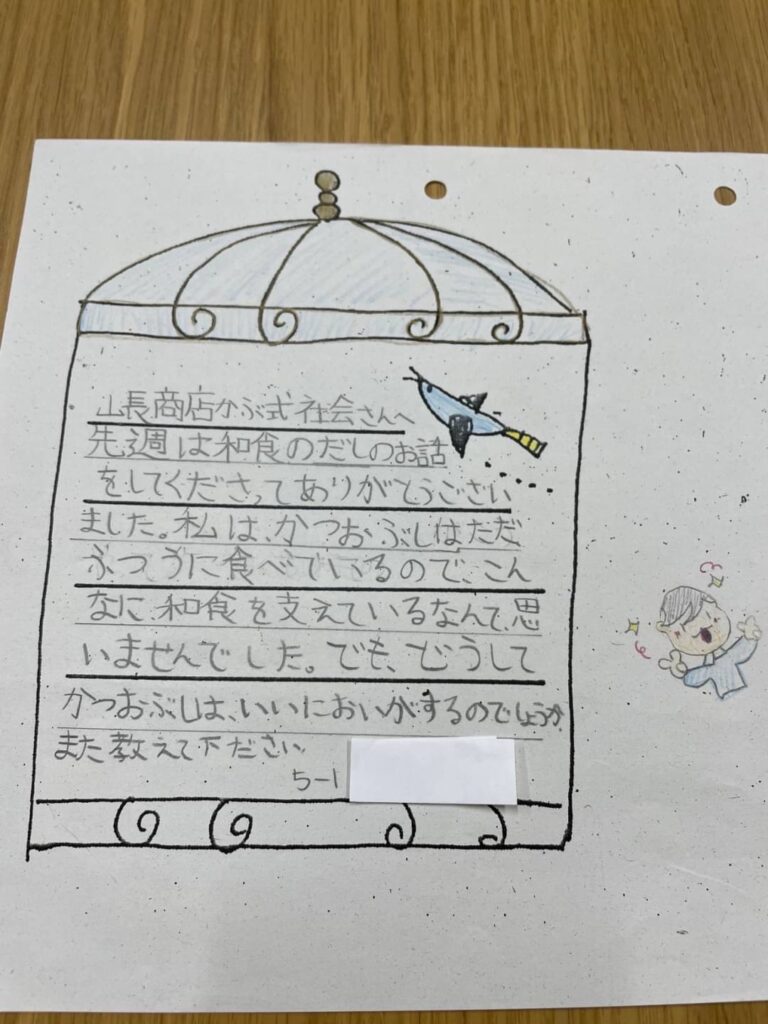 山長商店かぶ式社会さんへ
先週は和食のだしのお話
をしてくださってありがとうござい
ました。私は、かつおぶしはただ
ふつうに食べているので、こん
なに、和食を支えているなんて、思
いませんでした。でも、どうして
かつおぶしは、いいにおいがするのでしょうか
また教えて下ださい
5-1